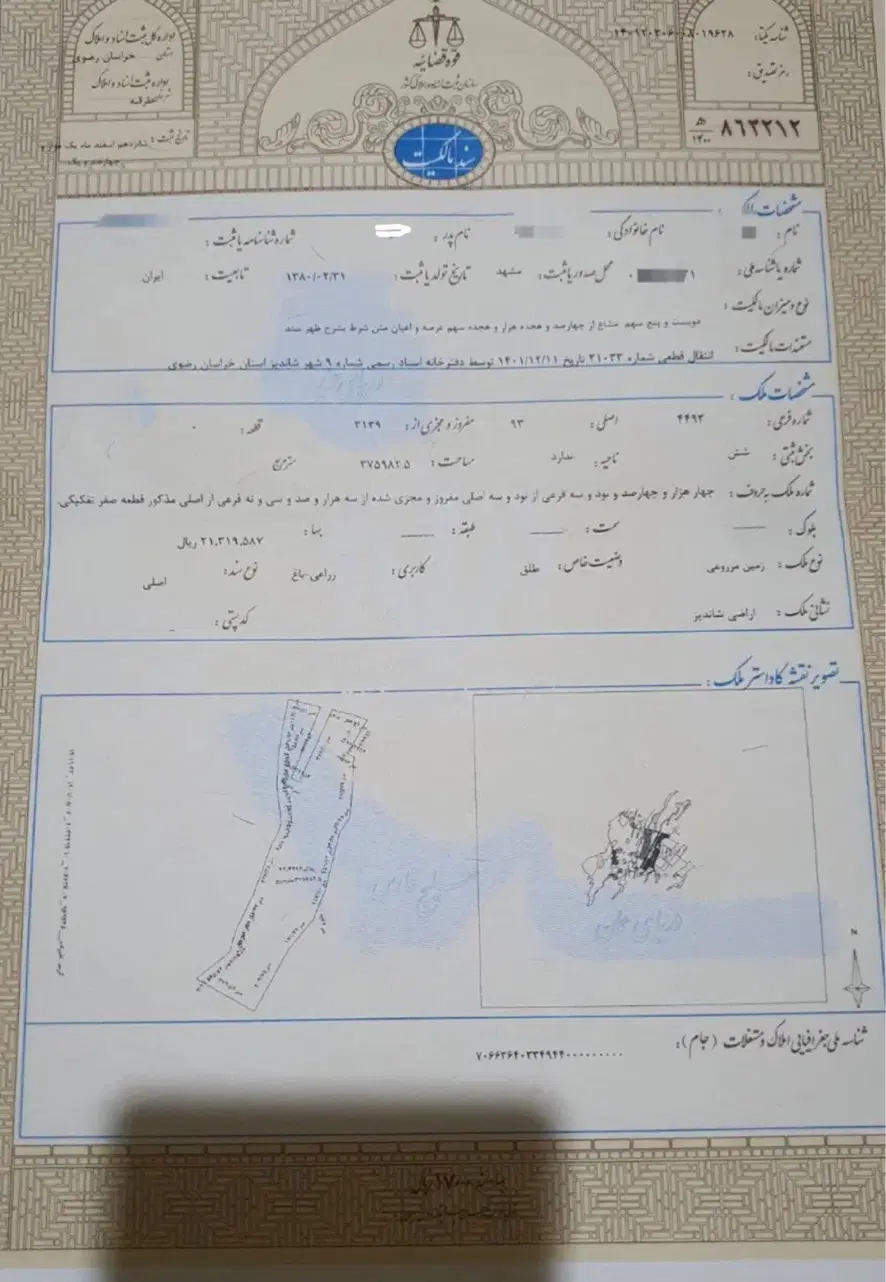 قوه قضائیه
سازمان ثبت اسناد و املاک کشور
اداره کل ثبت اسناد و املاک
استان خراسان رضوی
اداره ثبت اسناد و املاک
طرقبه
تاریخ ثبت: شانزدهم اسفند ماه یک هزار و
چهارصد و یک
شناسه یکتا: ۱۴۰۱۲۰۳۰۶۰۰۸۰۱۹۶۲۸
رمز تصدیق:
۸۶۳۲۱۲
ه‍
۱۴۰۰
سند مالکیت
مشخصات مالک:
نام: نام خانوادگی: نام پدر: شماره شناسنامه یا ثبت:
شماره یا شناسه ملی: ۱ محل صدور یا ثبت: مشهد تاریخ تولد یا ثبت: ۱۳۸۰/۰۲/۳۱ تابعیت: ایران
نوع و میزان مالکیت:
دویست و پنج سهم مشاع از چهارصد و هجده هزار و هجده سهم عرصه و اعیان متن شرط بشرح ظهر سند
مستندات مالکیت: انتقال قطعی شماره ۲۱۰۳۳ تاریخ ۱۴۰۱/۱۲/۱۱ توسط دفترخانه اسناد رسمی شماره ۹ شهر شاندیز استان خراسان رضوی
مشخصات ملک:
شماره فرعی: ۴۴۹۳ اصلی: ۹۳ مفروز و مجزی از: ۳۱۳۹ قطعه: ۰
بخش ثبتی: شش ناحیه: ندارد مساحت: ۳۷۵۹۸۲.۵ مترمربع
شماره ملک به حروف: چهار هزار و چهارصد و نود و سه فرعی از نود و سه اصلی مفروز و مجزی شده از سه هزار و صد و سی و نه فرعی از اصلی مذکور قطعه صفر تفکیکی.
بلوک: سمت: طبقه: بها: ۲۱,۳۱۹,۵۸۷ ریال
نوع ملک: زمین مزروعی وضعیت خاص: طلق کاربری: زراعی-باغ نوع سند: اصلی
نشانی ملک: اراضی شاندیز کد پستی: -
تصویر نقشه کاداستر ملک:
خلیج فارس
دریای عمان
N
شناسه ملی جغرافیایی املاک و مستغلات (جام): ۷۰۶۶۳۶۴۰۳۳۴۹۴۴۰۰۰۰۰۰۰۰۰۰